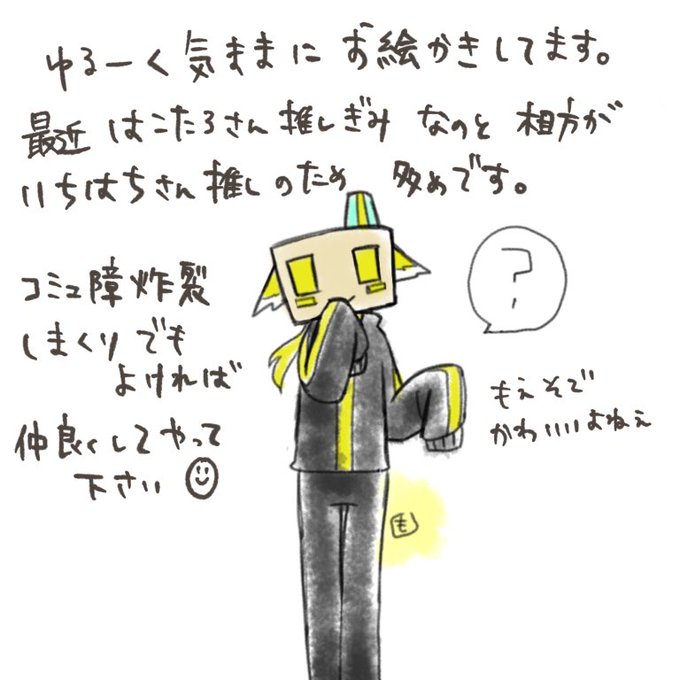 ゆるーく気ままにお絵かきしてます。
最近はこたろさん推しぎみなのと相方が
いちはちさん推しのため多めです。
?
コミュ障炸裂
しまくりでも
よければ
仲良くしてやって
下さい
もえそで
かわいいよねぇ
も